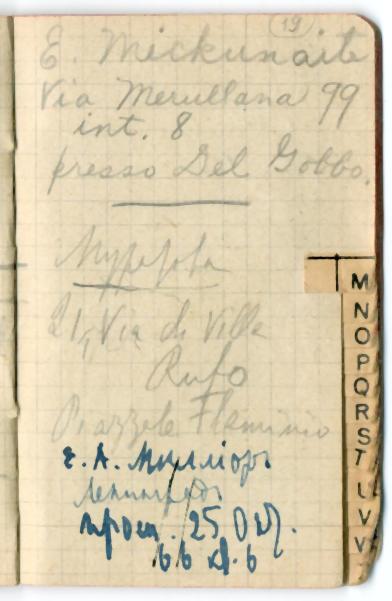 19
E. Mickunaite
Via Merullana 99
int. 8
presso Del Gobbo.
21, Via di Villa
Rufo
Piazzale Flaminio
Е. А. Миллiоръ
Ленинградъ
просп. 25 Окт.
66 кв. 6
M
N
O
P
Q
R
S
T
U
V
V